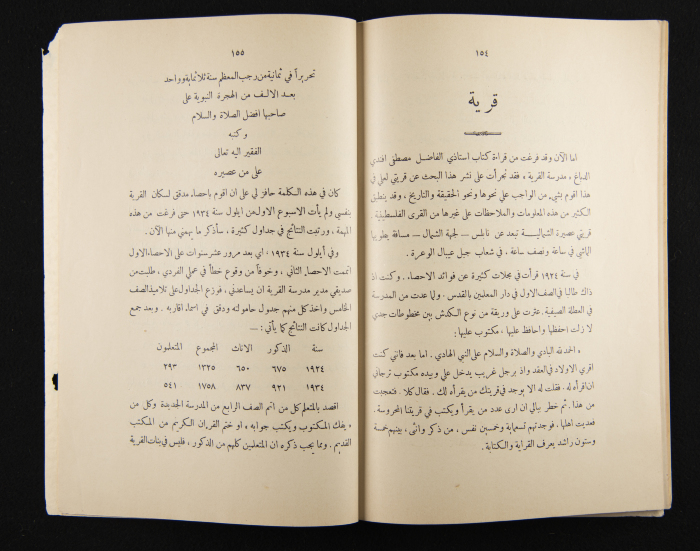 ١٥٤
قرية
اما الآن وقد فرغت من قراءة كتاب استاذي الفاضل مصطفى افندي
الدباغ ، مدرسة القرية ، فقد تجرأت على نشر هذا البحث عن قريتي لعلي في
هذا اقوم بشيء من الواجب علي نحوها ونحو الحقيقة والتاريخ ، وقد ينطبق
الكثير من هذه المعلومات والملاحظات على غيرها من القرى الفلسطينية .
قريتي عصيرة الشمالية تبعد عن نابلس — لجهة الشمال — مسافة يطويها
الماشي في ساعة ونصف ساعة ، في شعاب جبل عيبال الوعرة .
في سنة ١٩٢٤ قرأت في مجلات كثيرة عن فوائد الاحصاء . وكنت اذ
ذاك طالبا في الصف الاول في دار المعلمين بالقدس . ولما عدت من المدرسة
في العطلة الصيفية . عثرت على وريقة من نوع السكدش بين مخطوطات جدي
لا زلت احفظها واحافظ عليها ، مكتوب عليها :
« الحمد لله البادي والصلاة والسلام على النبي الهادي . اما بعد فانني كنت
اقري الاولاد في العقد واذ برجل غريب يدخل علي وبيده مكتوب ترجاني
ان اقرأه له . فقلت له الا يوجد في قريتك من يقرأه لك . فقال كلا . فتعجبت
من هذا . ثم خطر ببالي ان ارى عدد من يقرأ ويكتب في قريتنا المحروسة .
فعديت اهلها . فوجدتهم تسعماية وخمسين نفس ، من ذكر وانثى ، بينهم خمسة
وستون راشد يعرف القراية والكتابة .
١٥٥
تحريراً في ثمانية من رجب المعظم سنة ثلاثماية وواحد
بعد الالف من الهجرة النبوية على
صاحبها افضل الصلاة والسلام
وكتبه
الفقير اليه تعالى
علي من عصيره
كان في هذه الكلمة حافز لي على ان اقوم باحصاء مدقق لسكان القرية
بنفسي ولم يأت الاسبوع الاول من ايلول سنة ١٩٢٤ حتى فرغت من هذه
المهمة ، ورتبت النتائج في جداول كثيرة ، سأذكر ما يهمني منها الآن .
وفي أيلول سنة ١٩٣٤ ، اي بعد مرور عشر سنوات على الاحصاء الاول
اتممت الاحصاء الثاني ، وخوفاً من وقوع خطأ في عملي الفردي ، طلبت من
صديقي مدير مدرسة القرية ان يساعدني ، فوزع الجداول على تلاميذ الصف
الخامس واخذ كل منهم جدول حامولته ودقق في اسماء اقاربه . وبعد جمع
الجداول كانت النتائج كما يأتي : —
سنة الذكور الاناث المجموع المتعلمون
١٩٢٤ ٦٧٥ ٦٥٠ ١٣٢٥ ٢٩٣
١٩٣٤ ٩٢١ ٨٣٧ ١٧٥٨ ٥٤١
اقصد بالمتعلم كل من اتم الصف الرابع من المدرسة الجديدة وكل من
« يفك المكتوب ويكتب جوابه » او ختم القرآن الكريم من المكتب
القديم . ومما يجب ذكره ان المتعلمين كلهم من الذكور ، فليس في بنات القرية